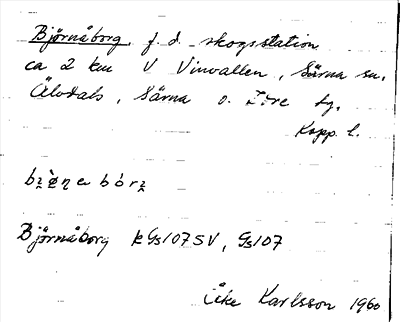 Björnåborg f.d. skogsstation
ca 2 km V Vinvallen, Särna sn.
Älvdals, Särna o. Idre tg.
Kopp. l.
Björnåborg kGs107SV, Gs107
Åke Karlsson 1960